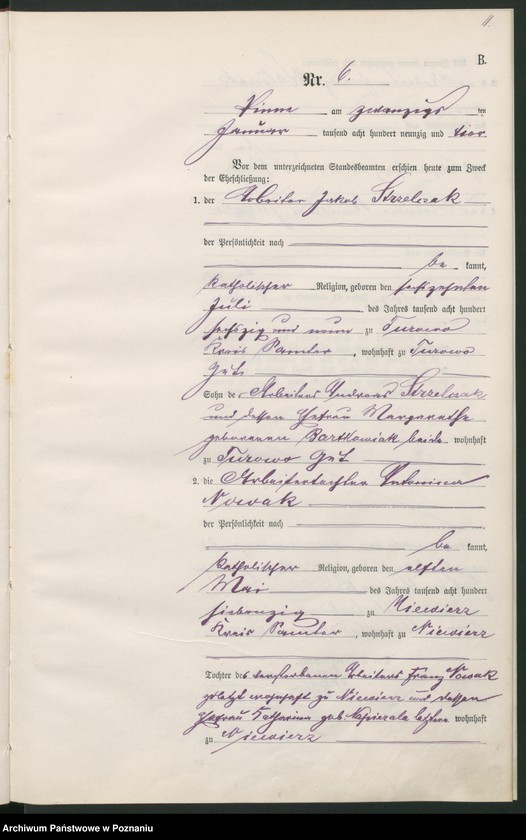 11.
B.
Nr. 6.
Pinne am zwanzigs ten
Januar tausend acht hundert neunzig und vier
Vor dem unterzeichneten Standesbeamten erschien heute zum Zweck
der Eheschließung:
1. der Arbeiter Jakob Strzelczak
der Persönlichkeit nach
be kannt,
katholischer Religion, geboren den sechszehnten
Juli des Jahres tausend acht hundert
sechszig und neun zu Turowo
Kreis Samter, wohnhaft zu Turowo
Gut
Sohn des Arbeiters Andreas Strzelczak
und dessen Ehefrau Margarethe
geborenen Bartkowiak beide wohnhaft
zu Turowo Gut
2. die Arbeitertochter Antonina
Nowak
der Persönlichkeit nach
be kannt,
katholischer Religion, geboren den elften
Mai des Jahres tausend acht hundert
siebenzig zu Niewierz
Kreis Samter, wohnhaft zu Niewierz
Tochter des verstorbenen Arbeiters Franz Nowak
zuletzt wohnhaft zu Niewierz und dessen
Ehefrau Katharina geb. Napierala letztere wohnhaft
zu Niewierz
Archiwum Państwowe w Poznaniu